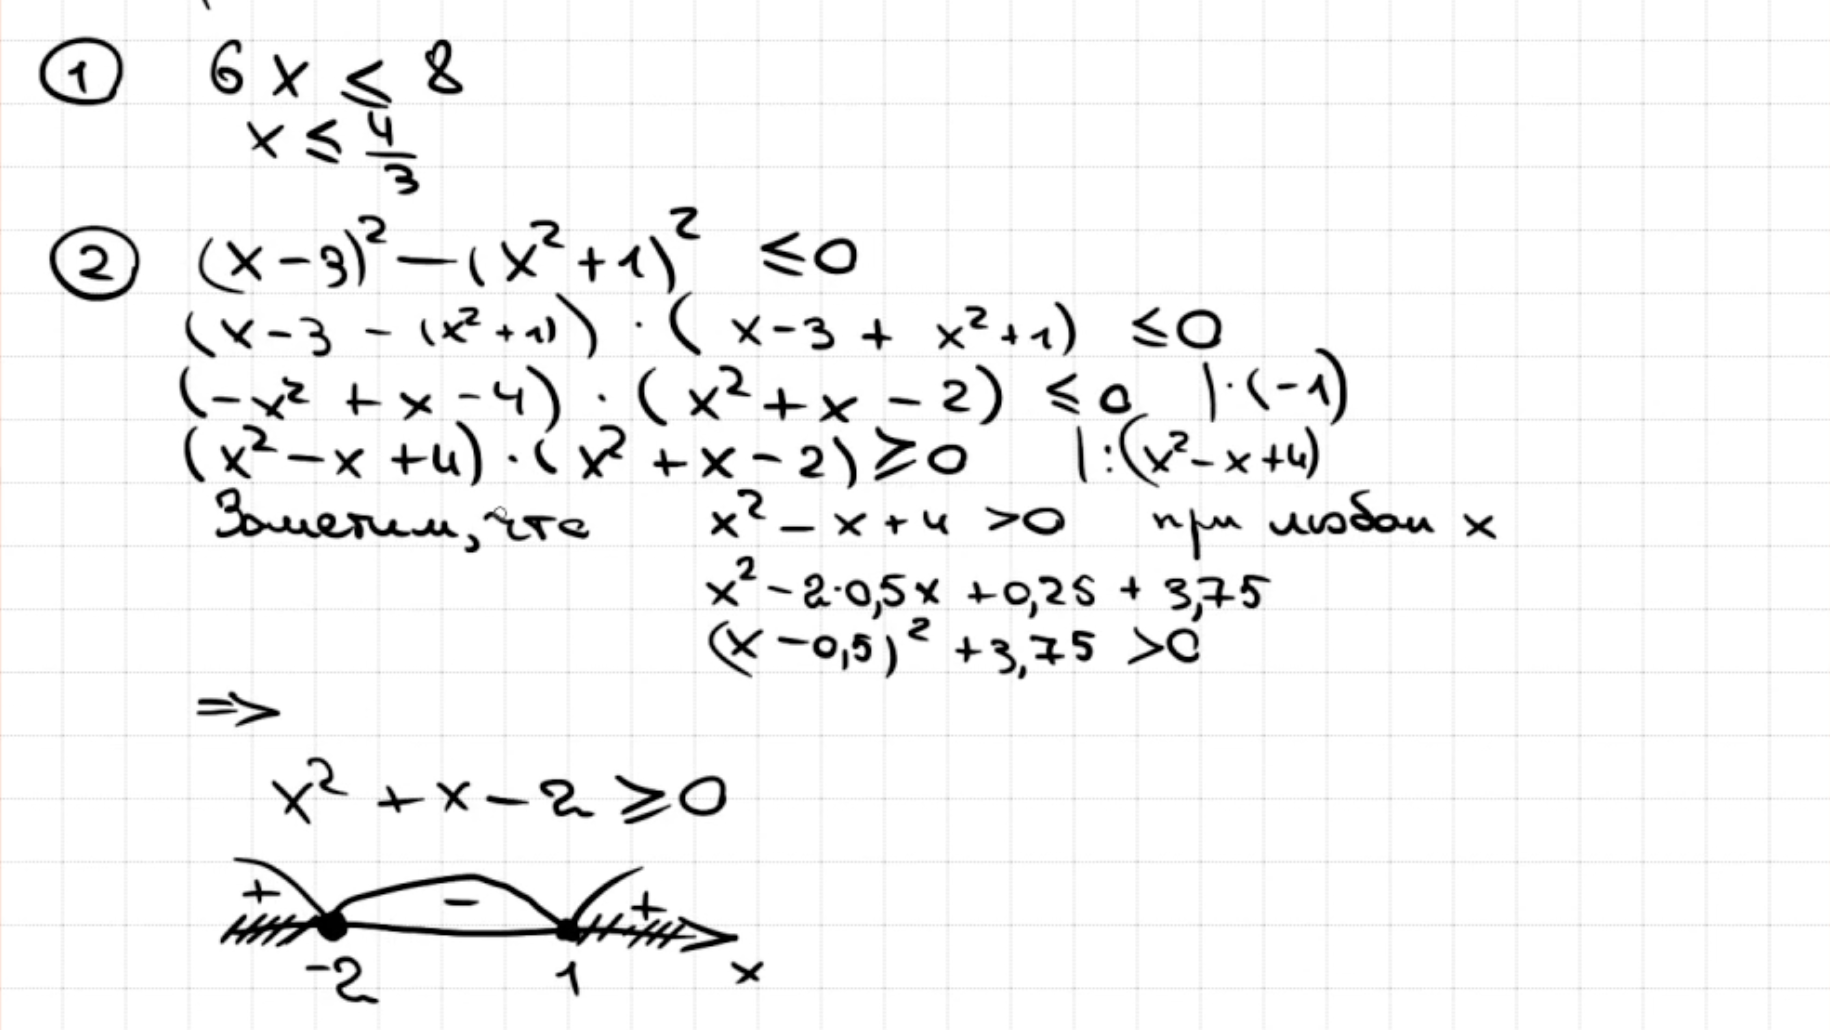 ① 6x ≤ 8
x ≤ 4/3
② (x-3)² - (x²+1)² ≤ 0
(x-3 - (x²+1)) · (x-3 + x²+1) ≤ 0
(-x² + x - 4) · (x² + x - 2) ≤ 0 | ·(-1)
(x² - x + 4) · (x² + x - 2) ≥ 0 | :(x² - x + 4)
Заметим, что x² - x + 4 > 0 при любом x
x² - 2·0,5x + 0,25 + 3,75
(x - 0,5)² + 3,75 > 0
=>
x² + x - 2 ≥ 0
+ - +
-2 1 x